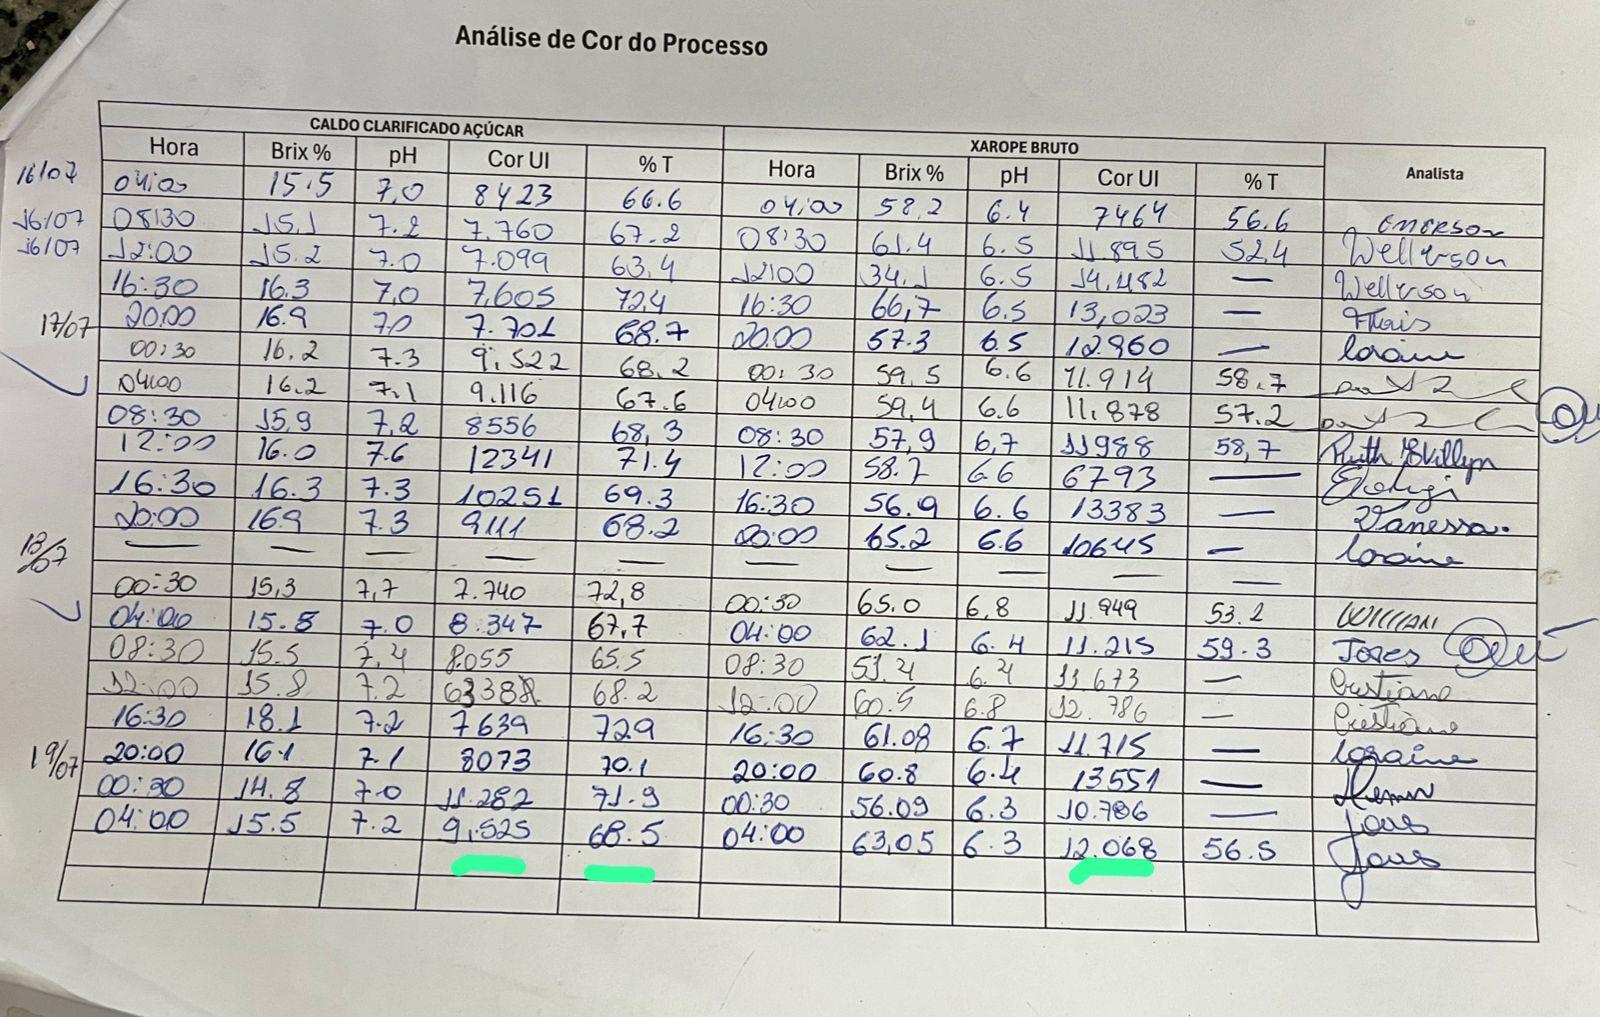 Análise de Cor do Processo
CALDO CLARIFICADO AÇÚCAR XAROPE BRUTO Analista
Hora Brix % pH Cor UI % T Hora Brix % pH Cor UI % T
16/07 04:00 15.5 7,0 8423 66.6 04:00 58.2 6.4 7464 56.6 emerson
16/07 08:30 15.1 7.2 7.760 67.2 08:30 61.4 6.5 11.895 52,4 Wellerson
16/07 12:00 15.2 7.0 7.099 63,4 12:00 34.1 6.5 14.182 — Wellerson
16:30 16.3 7,0 7,605 72,4 16:30 66,7 6.5 13,023 — Thais
20:00 16.9 7.0 7.701 68.7 20:00 57.3 6.5 12.960 — loraine
17/07 00:30 16.2 7.3 9.522 68.2 00:30 59.5 6.6 11.914 58.7
04:00 16.2 7.1 9.116 67.6 04:00 59,4 6.6 11.878 57.2
08:30 15,9 7,2 8556 68,3 08:30 57,9 6,7 11988 58,7 Ruth
12:00 16.0 7.6 12341 71.4 12:00 58.7 6.6 6793 —
16:30 16.3 7.3 10251 69.3 16:30 56.9 6.6 13383 — Vanessa.
20:00 16.9 7.3 9111 68.2 20:00 65.2 6.6 10645 — loraine
— — — — — — — — — —
18/07 00:30 15,3 7,7 7.740 72,8 00:30 65.0 6,8 11.949 53.2 William
04:00 15.8 7.0 8.347 67,7 04:00 62.1 6.4 11.215 59.3
08:30 15.5 7,4 8.055 65.5 08:30 51.4 6.4 11.673 — Cristiano
12:00 15.8 7.2 68.2 12:00 60.5 6.8 12.786 — Cristiano
16:30 18.1 7.2 7639 729 16:30 61.08 6.7 11.715 — loraine
20:00 16.1 7.1 8073 70.1 20:00 60.8 6.4 13551 —
19/07 00:30 14.8 7.0 11.282 71.9 00:30 56.09 6.3 10.786 —
04:00 15.5 7.2 9,525 68.5 04:00 63,05 6.3 12.068 56.5